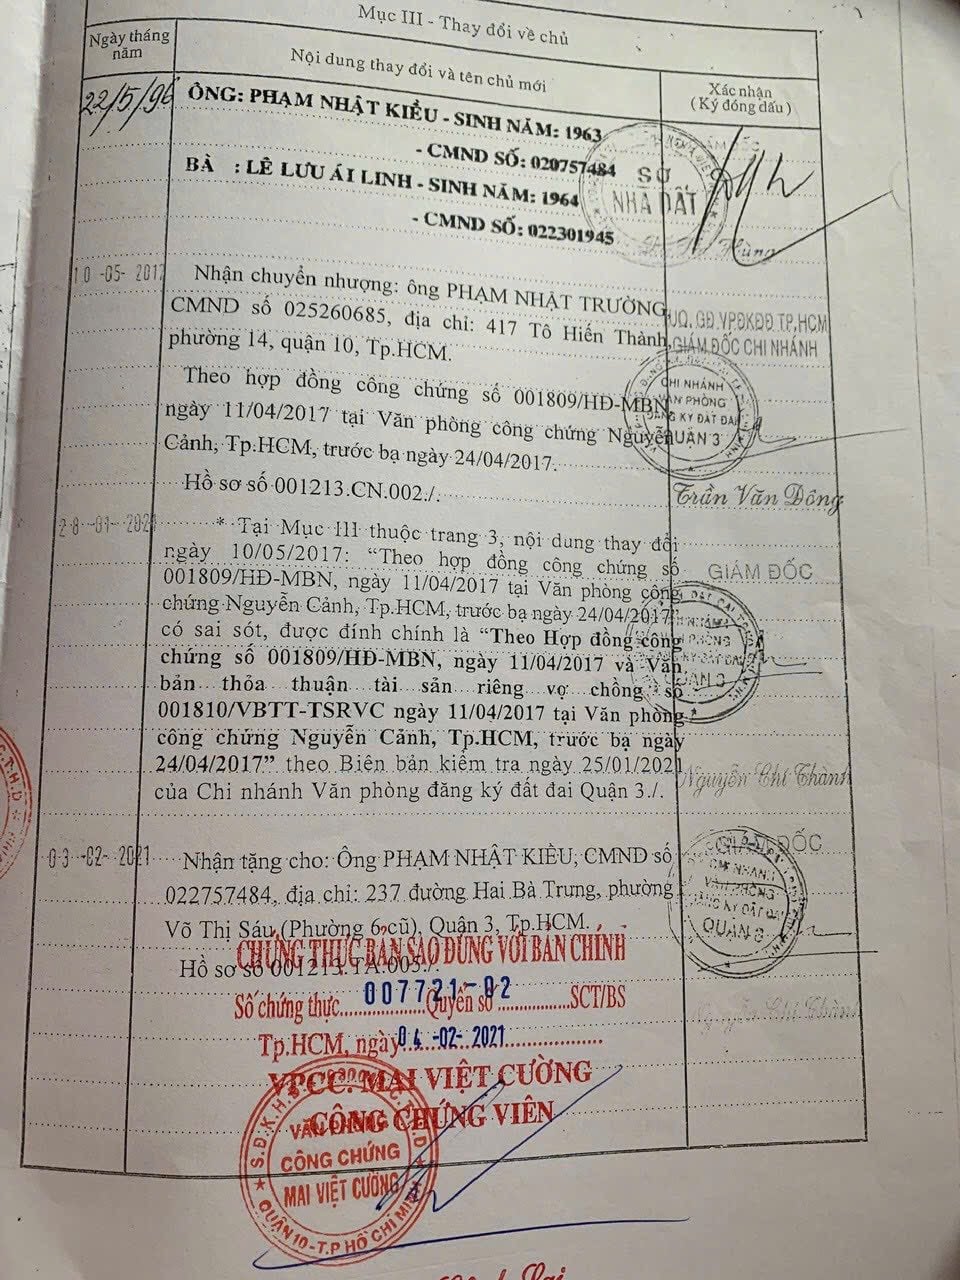 Mục III - Thay đổi về chủ
Ngày tháng năm
Nội dung thay đổi và tên chủ mới
Xác nhận
(Ký đóng dấu)
22/5/96
ÔNG: PHẠM NHẬT KIỀU - SINH NĂM: 1963
- CMND SỐ: 020757484
BÀ : LÊ LƯU ÁI LINH - SINH NĂM: 1964
- CMND SỐ: 022301945
SỞ
NHÀ ĐẤT
10-05-2017
Nhận chuyển nhượng: ông PHẠM NHẬT TRƯỜNG,
CMND số 025260685, địa chỉ: 417 Tô Hiến Thành,
phường 14, quận 10, Tp.HCM.
Theo hợp đồng công chứng số 001809/HĐ-MBN,
ngày 11/04/2017 tại Văn phòng công chứng Nguyễn
Cảnh, Tp.HCM, trước bạ ngày 24/04/2017.
Hồ sơ số 001213.CN.002./.
UQ. GĐ.VPĐKĐĐ TP.HCM
GIÁM ĐỐC CHI NHÁNH
CHI NHÁNH
VĂN PHÒNG
ĐĂNG KÝ ĐẤT ĐAI
QUẬN 3
Trần Văn Đông
28-01-2021
* Tại Mục III thuộc trang 3, nội dung thay đổi
ngày 10/05/2017: “Theo hợp đồng công chứng số
001809/HĐ-MBN, ngày 11/04/2017 tại Văn phòng công
chứng Nguyễn Cảnh, Tp.HCM, trước bạ ngày 24/04/2017”
có sai sót, được đính chính là “Theo Hợp đồng công
chứng số 001809/HĐ-MBN, ngày 11/04/2017 và Văn
bản thỏa thuận tài sản riêng vợ chồng số
001810/VBTT-TSRVC ngày 11/04/2017 tại Văn phòng
công chứng Nguyễn Cảnh, Tp.HCM, trước bạ ngày
24/04/2017” theo Biên bản kiểm tra ngày 25/01/2021
của Chi nhánh Văn phòng đăng ký đất đai Quận 3./.
GIÁM ĐỐC
QUẬN 3
Nguyễn Chí Thành
03-02-2021
Nhận tặng cho: Ông PHẠM NHẬT KIỀU, CMND số
022757484, địa chỉ: 237 đường Hai Bà Trưng, phường
Võ Thị Sáu (Phường 6 cũ), Quận 3, Tp.HCM.
Hồ sơ số 001213.TA.005./.
GIÁM ĐỐC
CHI NHÁNH
VĂN PHÒNG
ĐĂNG KÝ ĐẤT ĐAI
QUẬN 3
Nguyễn Chí Thành
CHỨNG THỰC BẢN SAO ĐÚNG VỚI BẢN CHÍNH
Số chứng thực 007721-02 Quyển số SCT/BS
Tp.HCM, ngày 04-02-2021
VPCC. MAI VIỆT CƯỜNG
CÔNG CHỨNG VIÊN
VĂN PHÒNG
CÔNG CHỨNG
MAI VIỆT CƯỜNG
QUẬN 10 - T.P HỒ CHÍ MINH